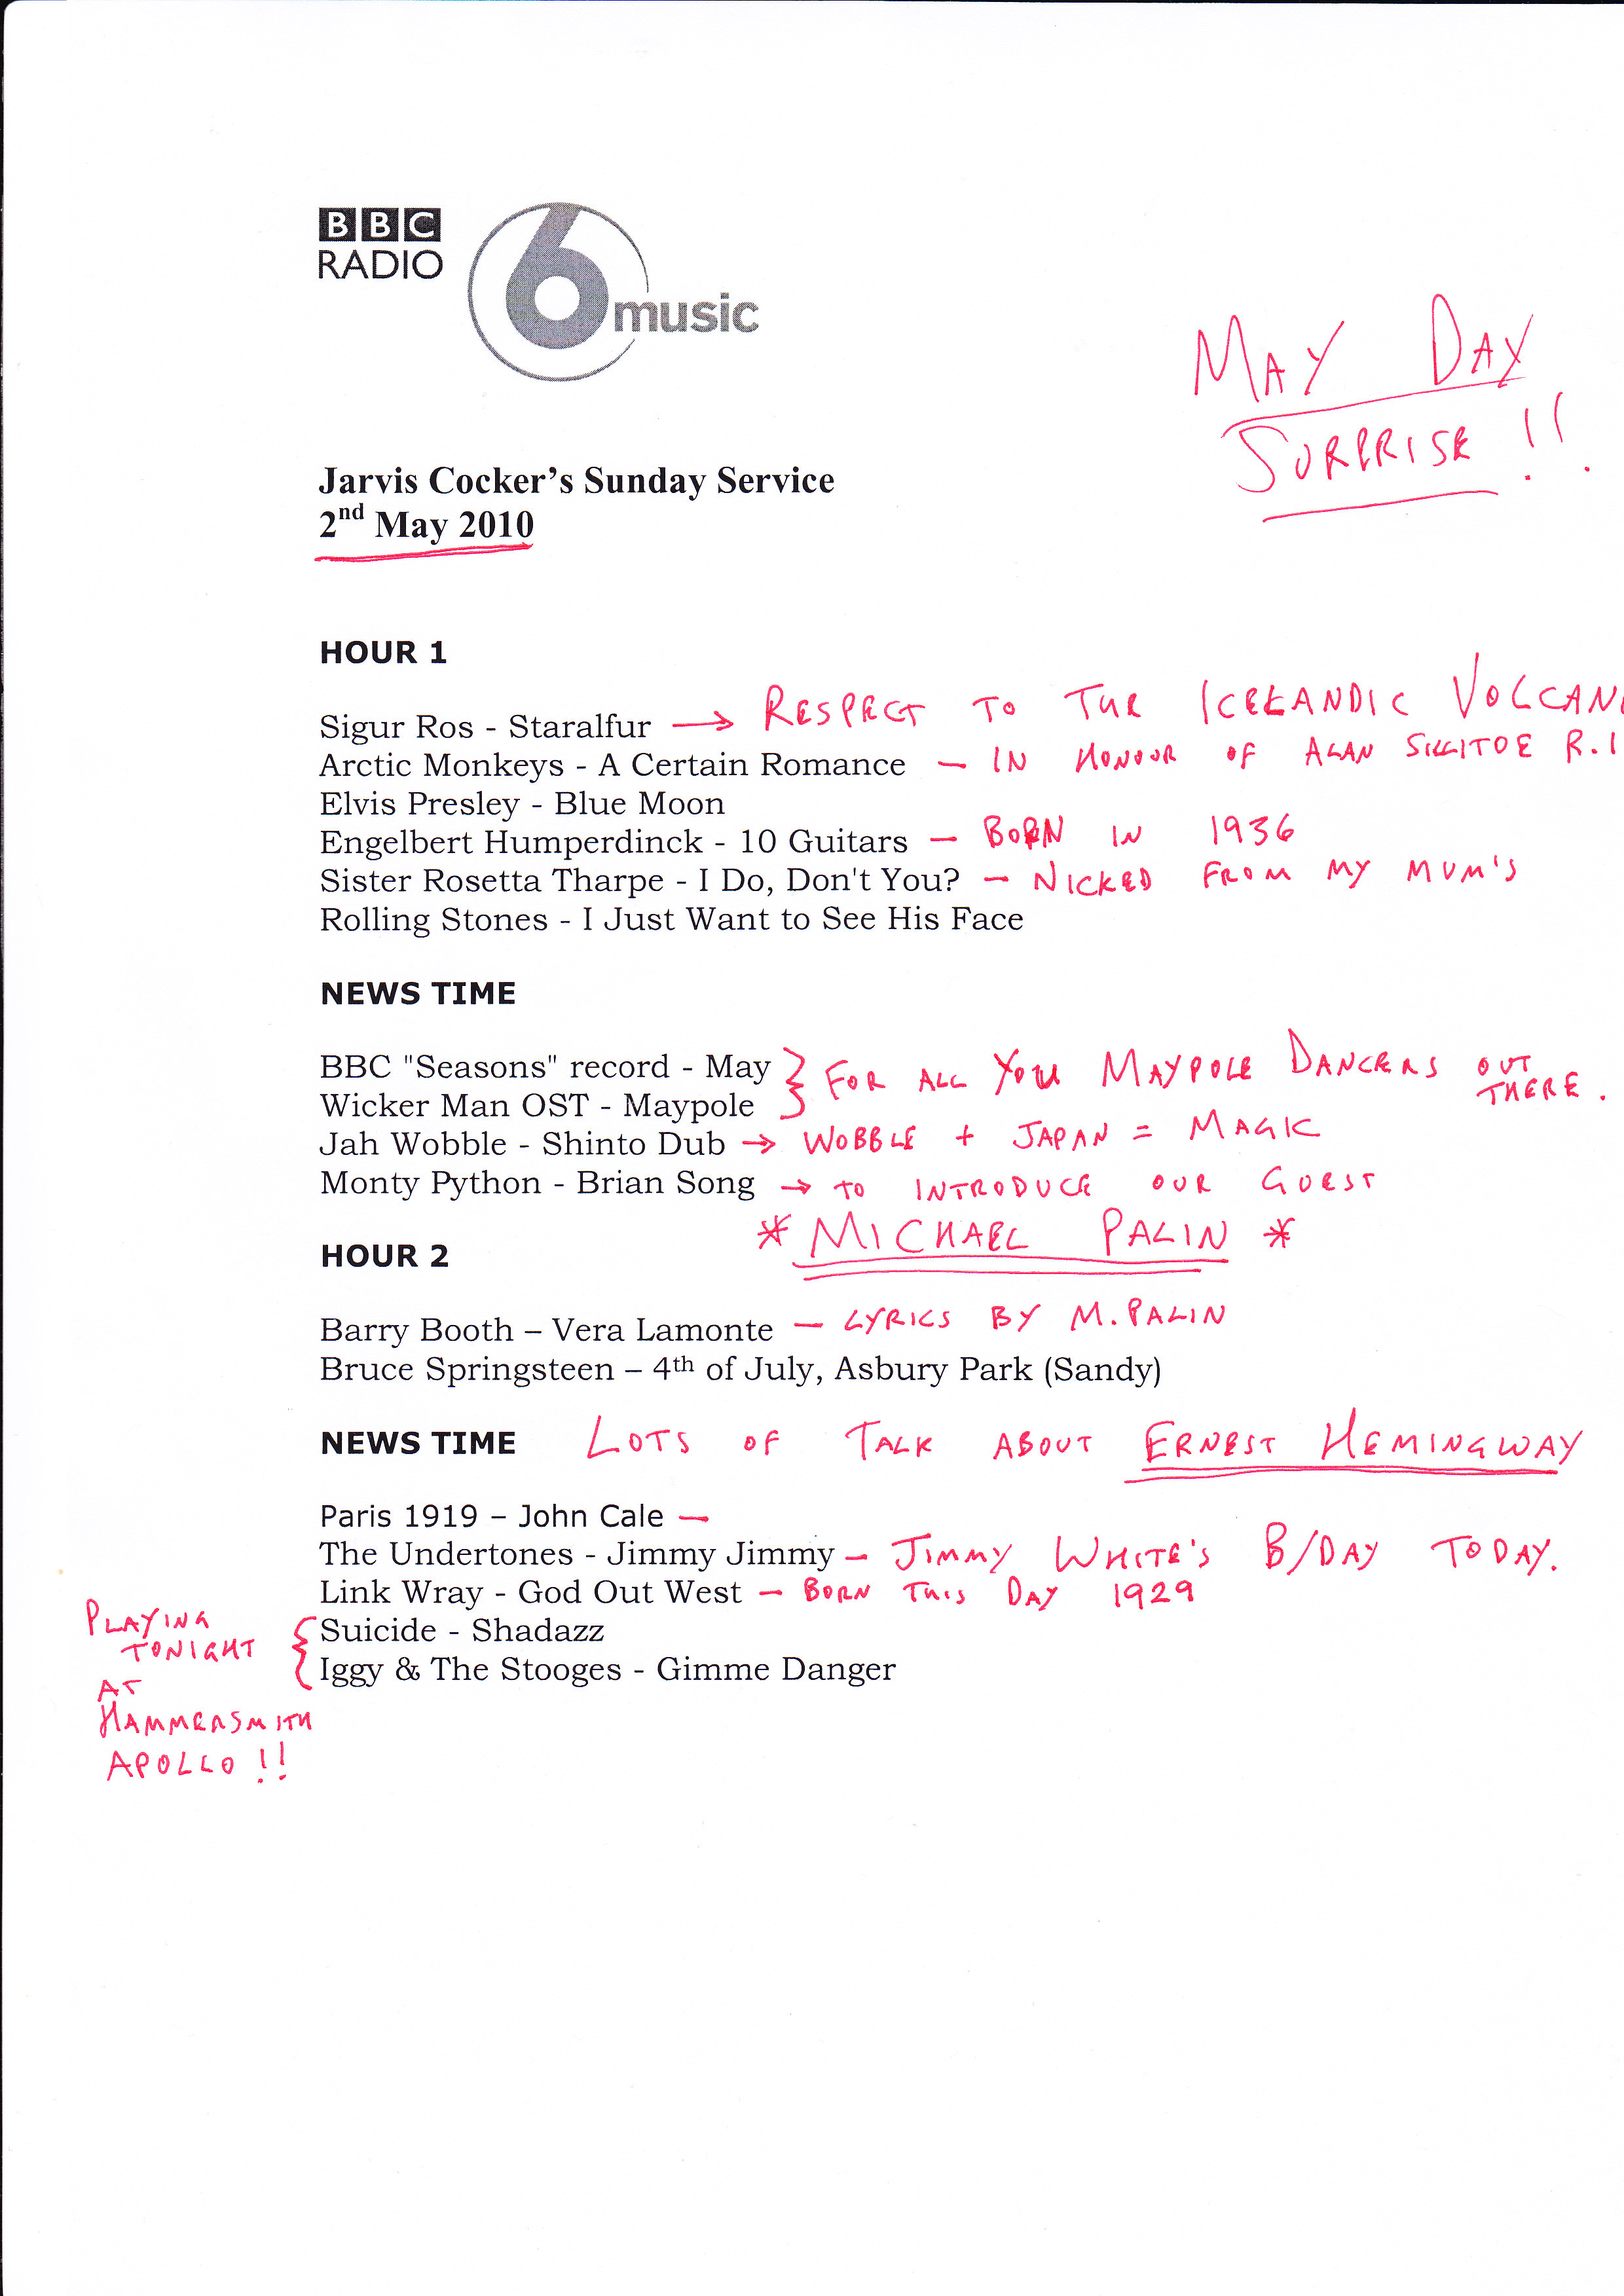 BBC
RADIO
6music
MAY DAY
SURPRISE !!
Jarvis Cocker's Sunday Service
2nd May 2010
HOUR 1
Sigur Ros - Staralfur → RESPECT TO THE ICELANDIC VOLCAN
Arctic Monkeys - A Certain Romance – IN HONOUR OF ALAN SILLITOE R.I
Elvis Presley - Blue Moon
Engelbert Humperdinck - 10 Guitars – BORN IN 1936
Sister Rosetta Tharpe - I Do, Don't You? – NICKED FROM MY MUM'S
Rolling Stones - I Just Want to See His Face
NEWS TIME
BBC "Seasons" record - May } FOR ALL YOU MAYPOLE DANCERS OUT THERE.
Wicker Man OST - Maypole
Jah Wobble - Shinto Dub → WOBBLE + JAPAN = MAGIC
Monty Python - Brian Song → TO INTRODUCE OUR GUEST
* MICHAEL PALIN *
HOUR 2
Barry Booth – Vera Lamonte – LYRICS BY M. PALIN
Bruce Springsteen – 4th of July, Asbury Park (Sandy)
NEWS TIME LOTS OF TALK ABOUT ERNEST HEMINGWAY
Paris 1919 – John Cale –
The Undertones - Jimmy Jimmy – JIMMY WHITE'S B/DAY TODAY.
Link Wray - God Out West – BORN THIS DAY 1929
Suicide - Shadazz
Iggy & The Stooges - Gimme Danger
PLAYING
TONIGHT
AT
HAMMERSMITH
APOLLO !!